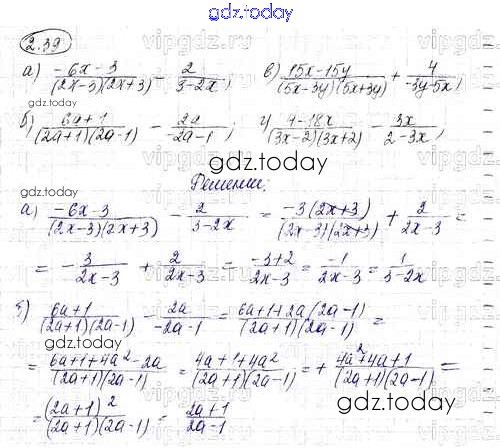 gdz.today
2.39
а) (-6x-3)/((2x-3)(2x+3)) - 2/(3-2x); в) (15x-15y)/((5x-3y)(5x+3y)) + 4/(-3y-5x);
gdz.today
б) (6a+1)/((2a+1)(2a-1)) - 2a/(-2a-1); г) (4-18x)/((3x-2)(3x+2)) - 3x/(2-3x);
gdz.today
Решение:
а) (-6x-3)/((2x-3)(2x+3)) - 2/(3-2x) = -3(2x+3)/((2x-3)(2x+3)) + 2/(2x-3) =
= -3/(2x-3) + 2/(2x-3) = (-3+2)/(2x-3) = -1/(2x-3) = 1/(3-2x)
б) (6a+1)/((2a+1)(2a-1)) - 2a/(-2a-1) = (6a+1+2a(2a-1))/((2a+1)(2a-1)) =
gdz.today
= (6a+1+4a²-2a)/((2a+1)(2a-1)) = (4a+1+4a²)/((2a+1)(2a-1)) = + (4a²+4a+1)/((2a+1)(2a-1)) =
= (2a+1)²/((2a+1)(2a-1)) = (2a+1)/(2a-1)
gdz.today